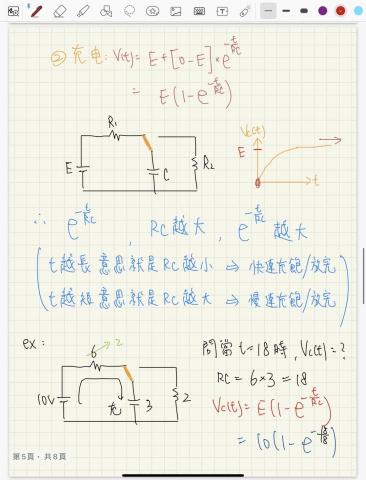 ② 充電: V(t) = E + [0-E] × e^-t/RC
= E(1-e^-t/RC)
R₁
E
C
R₂
Vc(t)
E
t
∴ e^-t/RC , RC越大 , e^-t/RC 越大
t越長意思就是RC越小 ⇒ 快速充飽/放完
t越短意思就是RC越大 ⇒ 慢速充飽/放完
ex:
6 → 2
10V
充
3
2
問當 t=18時, Vc(t)=?
RC = 6×3 = 18
Vc(t) = E(1-e^-t/RC)
= 10(1-e^-18/18)
第5頁,共8頁